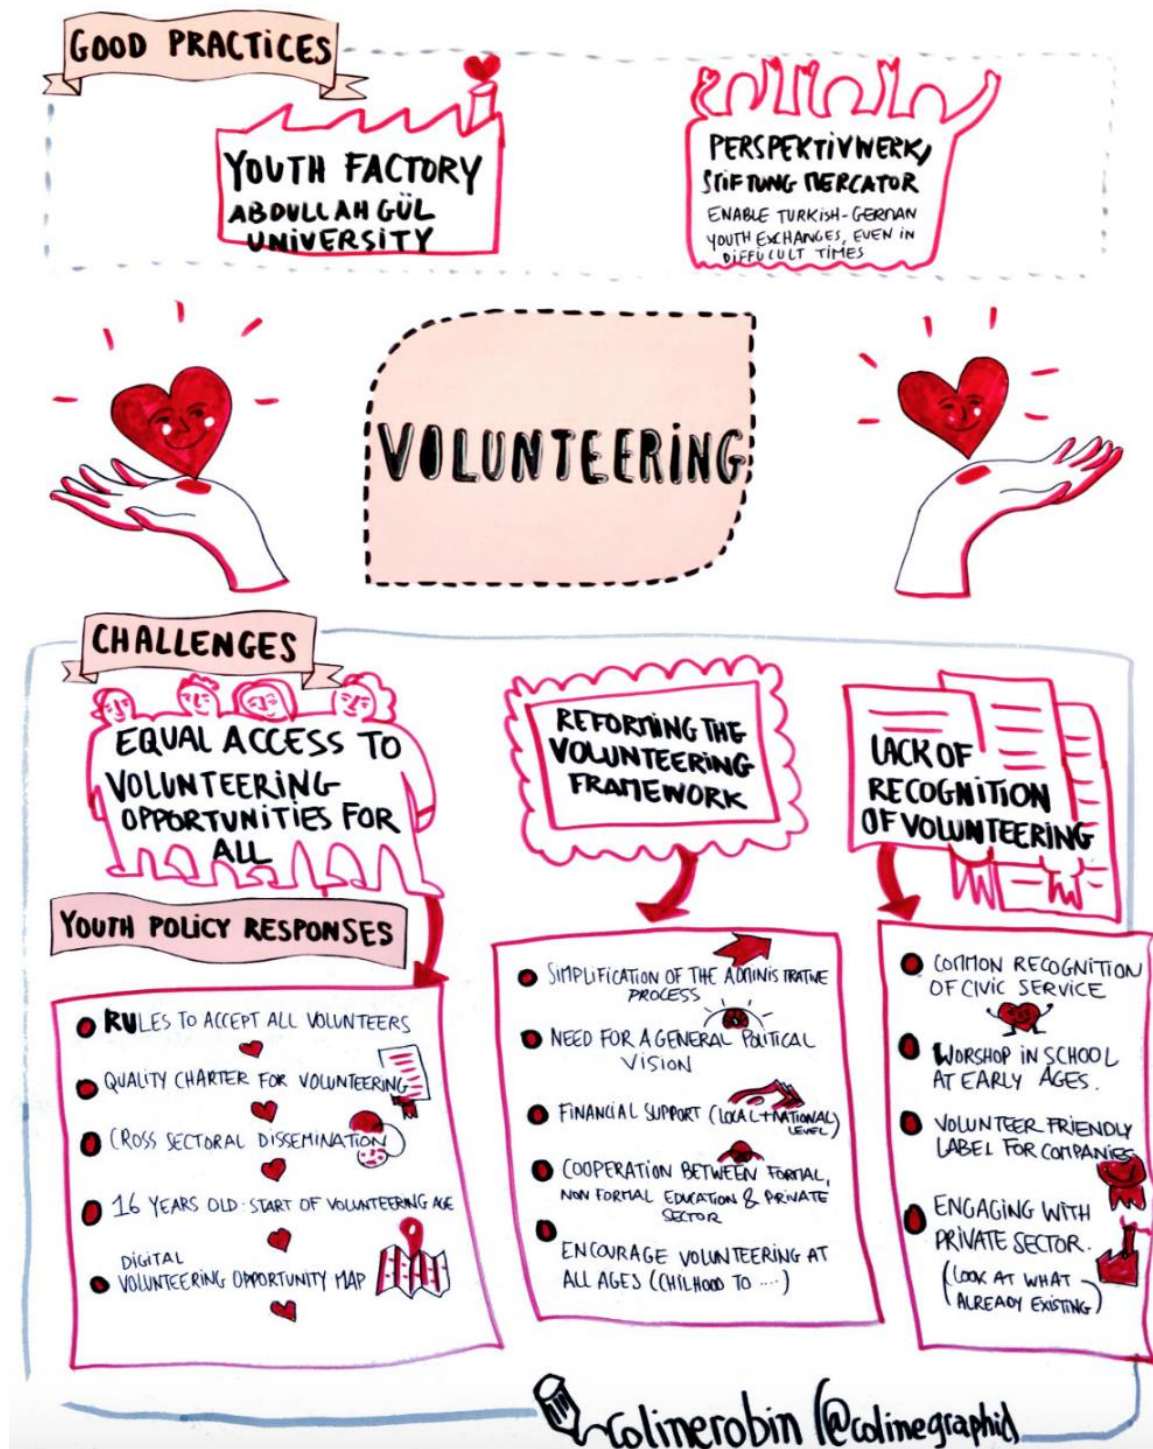 GOOD PRACTICES
YOUTH FACTORY
ABDULLAH GÜL
UNIVERSITY
PERSPEKTIVWERK,
STIFTUNG MERCATOR
ENABLE TURKISH-GERMAN
YOUTH EXCHANGES, EVEN IN
DIFFUCULT TIMES
VOLUNTEERING
CHALLENGES
EQUAL ACCESS TO
VOLUNTEERING
OPPORTUNITIES FOR
ALL
REFORMING THE
VOLUNTEERING
FRAMEWORK
LACK OF
RECOGNITION
OF VOLUNTEERING
YOUTH POLICY RESPONSES
RULES TO ACCEPT ALL VOLUNTEERS
QUALITY CHARTER FOR VOLUNTEERING
CROSS SECTORAL DISSEMINATION
16 YEARS OLD: START OF VOLUNTEERING AGE
DIGITAL
VOLUNTEERING OPPORTUNITY MAP
SIMPLIFICATION OF THE ADMINISTRATIVE
PROCESS
NEED FOR A GENERAL POLITICAL
VISION
FINANCIAL SUPPORT (LOCAL+NATIONAL
LEVEL)
COOPERATION BETWEEN FORMAL,
NON FORMAL EDUCATION & PRIVATE
SECTOR
ENCOURAGE VOLUNTEERING AT
ALL AGES (CHILHOOD TO ....)
COMMON RECOGNITION
OF CIVIC SERVICE
WORSHOP IN SCHOOL
AT EARLY AGES.
VOLUNTEER FRIENDLY
LABEL FOR COMPANIES
ENGAGING WITH
PRIVATE SECTOR.
(LOOK AT WHAT
ALREADY EXISTING)
colinerobin (@colinegraphic)